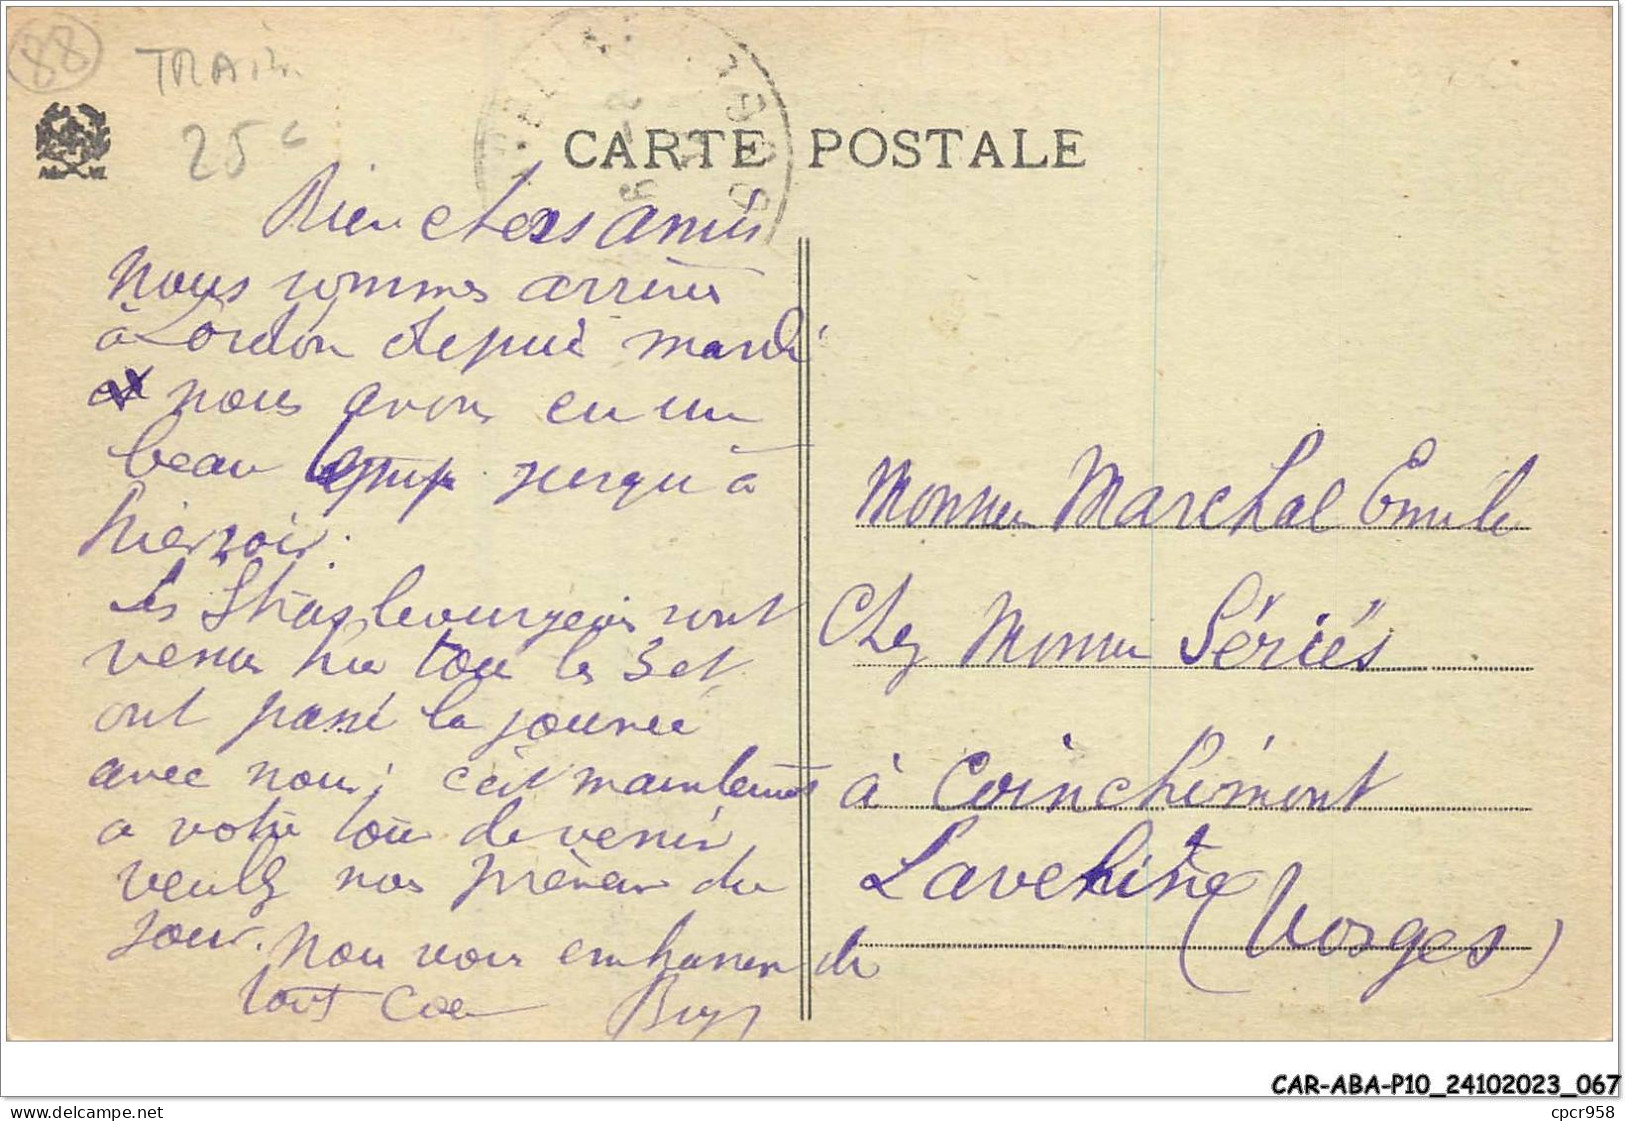 88
TRAIN
25 c
CARTE POSTALE
Bien chers amis
Nous sommes arrivés
à Lordon depuis mardi
et nous avons eu un
beau temps jusqu'à
hier soir.
Les Strasbourgeois sont
venus hier tou les 3 et
ont passé la journée
avec nous; c'est maintenant
a votre tour de venir
veuillez nous prévenir du
jour. Nous vous embrassons de
tout cœur
Monsieur Marchal Emile
Chez Monsieur Sériés
à Coinchimont
Laveline
(Vosges)
CAR-ABA-P10_24102023_067
www.delcampe.net
cpcr958